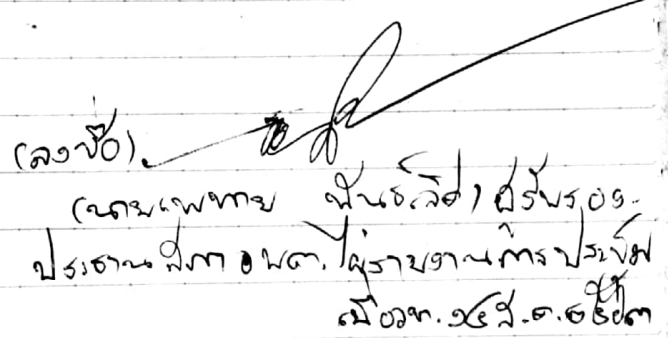 (ลงชื่อ)
(นายเพทาย พันธ์เลิศ) ผู้รับรอง
ประธานสภา อบต. ผู้รายงานการประชุม
เมื่อว.